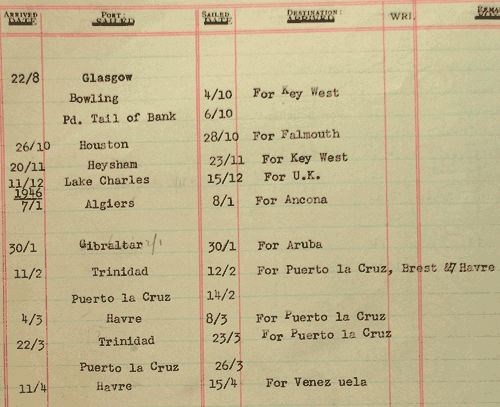 ARRIVED DATE PORT: SAILED SAILED DATE DESTINATION: ARRIVED WRI.
22/8 Glasgow
Bowling 4/10 For Key West
Pd. Tail of Bank 6/10
26/10 Houston 28/10 For Falmouth
20/11 Heysham 23/11 For Key West
11/12 Lake Charles 15/12 For U.K.
1946
7/1 Algiers 8/1 For Ancona
30/1 Gibraltar 30/1 For Aruba
11/2 Trinidad 12/2 For Puerto la Cruz, Brest & Havre
Puerto la Cruz 14/2
4/3 Havre 8/3 For Puerto la Cruz
22/3 Trinidad 23/3 For Puerto la Cruz
Puerto la Cruz 26/3
11/4 Havre 15/4 For Venez uela